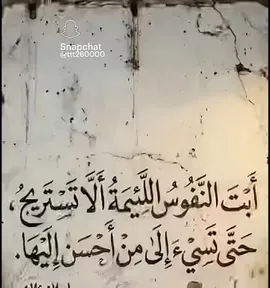 Snapchat
@ttt260000
أَبَتَ النَّفُوسُ اللَّئِيمَةُ أَلَّا تَسْتَرِيحُ،
حَتَّى تَسِيءَ إِلَى مِنْ أَحْسَن إِلَيْهَا.